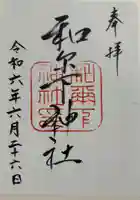 奉拝
和尓下神社
和爾下
神社
令和六年六月二十六日